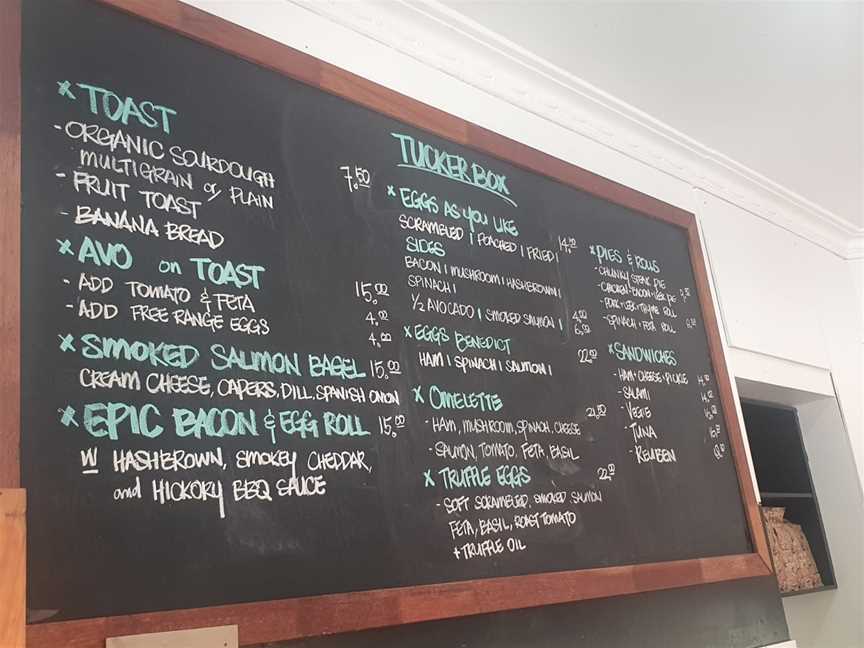 x TOAST
- ORGANIC SOURDOUGH 7.50
MULTIGRAIN or PLAIN
- FRUIT TOAST
- BANANA BREAD
x AVO on TOAST 15.00
- ADD TOMATO & FETA 4.00
- ADD FREE RANGE EGGS 4.00
x SMOKED SALMON BAGEL 15.00
CREAM CHEESE, CAPERS, DILL, SPANISH ONION
x EPIC BACON & EGG ROLL 15.00
W HASHBROWN, SMOKEY CHEDDAR,
and HICKORY BBQ SAUCE
TUCKER BOX
x EGGS AS YOU LIKE
SCRAMBLED | POACHED | FRIED |
SIDES
BACON | MUSHROOM | HASHBROWN |
SPINACH | 4.00
1/2 AVOCADO | SMOKED SALMON |
x EGGS BENEDICT 22.00
HAM | SPINACH | SALMON |
x OMELETTE
- HAM, MUSHROOM, SPINACH, CHEESE
- SALMON, TOMATO, FETA, BASIL
x TRUFFLE EGGS
- SOFT SCRAMBLED, SMOKED SALMON
FETA, BASIL, ROAST TOMATO
+ TRUFFLE OIL
x PIES & ROLLS
- CHUNKY STEAK PIE
- CHICKEN + BACON + LEEK PIE
- PORK + LEEK + THYME ROLL
- SPINACH + FETA ROLL
x SANDWICHES
- HAM + CHEESE + PICKLE
- SALAMI
- VEGIE
- TUNA
- REUBEN